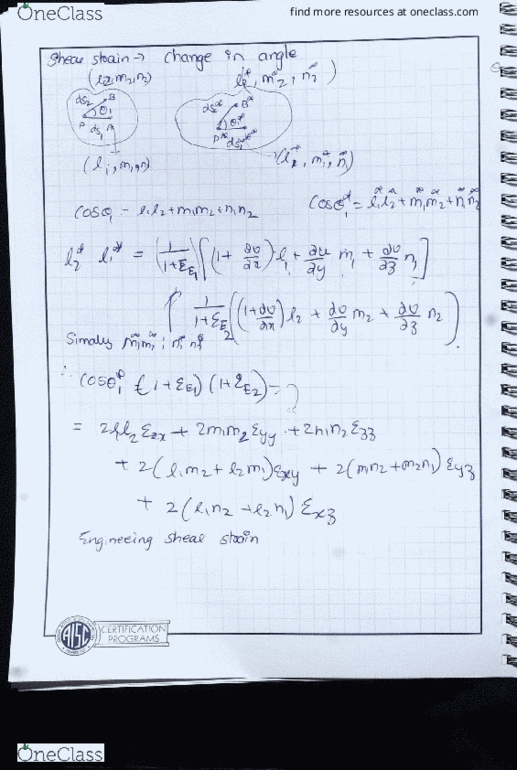 OneClass
find more resources at oneclass.com
Shear strain → change in angle
(l2, m2, n2)
l2*, m*2, n2*)
ds2 B
θ1
P ds1 A
ds2* B*
θ*
P* ds1*
(l1, m1, n1)
(l1*, m1*, n1*)
cosθ1 = l1l2+m1m2+n1n2
cosθ1* = l1*l2*+m1*m2*+n1*n2*
l2* l1* = (1/(1+εE1)) [(1+ ∂u/∂x) l1 + ∂u/∂y m1 + ∂u/∂z n1]
[1/(1+εE2) ((1+∂u/∂x) l2 + ∂u/∂y m2 + ∂u/∂z n2)].
m1*m2* ; n1* n2*
∴ cosθ1* (1+εE1) (1+εE2) = ?
= 2l1l2 εxx + 2m1m2 εyy + 2n1n2 εzz
+ 2(l1m2 + l2m1) εxy + 2(m1n2+m2n1) εyz
+ 2(l1n2 + l2n1) εxz
Engineeing shear strain
AISC
CERTIFICATION
PROGRAMS
OneClass